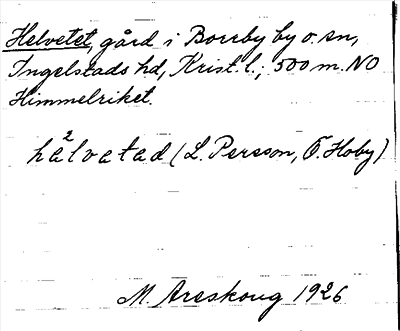 Helvetet, gård i Borrby by o. sn,
Ingelstads hd, Krist. l.; 500 m. NO
Himmelriket.
hä²lvatad (L. Persson, Ö. Hoby)
M. Areskoug 1926